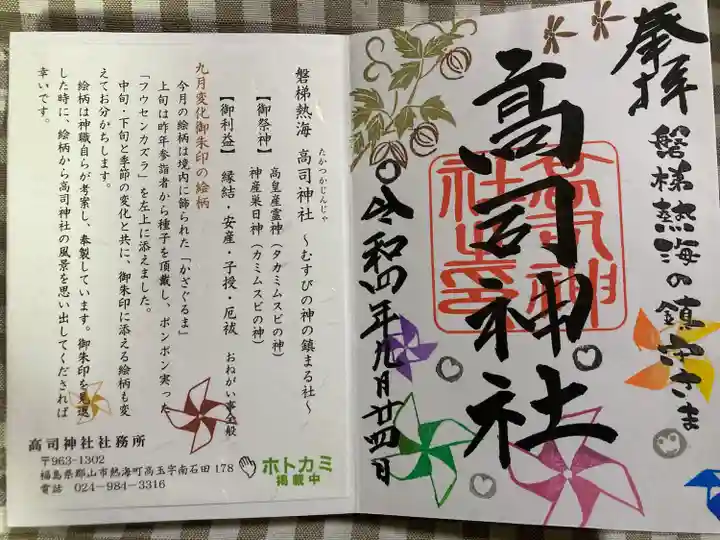 奉拝
磐梯熱海の鎮守さま
高司神社
高司神社之印
令和四年九月廿四日
磐梯熱海 高司神社 ～むすびの神の鎮まる社～
たかつかじんじゃ
【御祭神】 高皇産霊神（タカミムスビの神）
神産巣日神（カミムスビの神）
【御利益】 縁結・安産・子授・厄祓 おねがい事全般
九月変化御朱印の絵柄
今月の絵柄は境内に飾られた「かざぐるま」
上旬は昨年参詣者から種子を頂戴し、ポンポン実った
「フウセンカズラ」を左上に添えました。
中旬・下旬と季節の変化と共に、御朱印に添える絵柄も変
えてお分かちします。
絵柄は神職自らが考案し、奉製しています。御朱印を見返
した時に、絵柄から高司神社の風景を思い出してくだされば
幸いです。
高司神社社務所
〒963-1302
福島県郡山市熱海町高玉字南石田 178
電話 024-984-3316
ホトカミ
掲載中